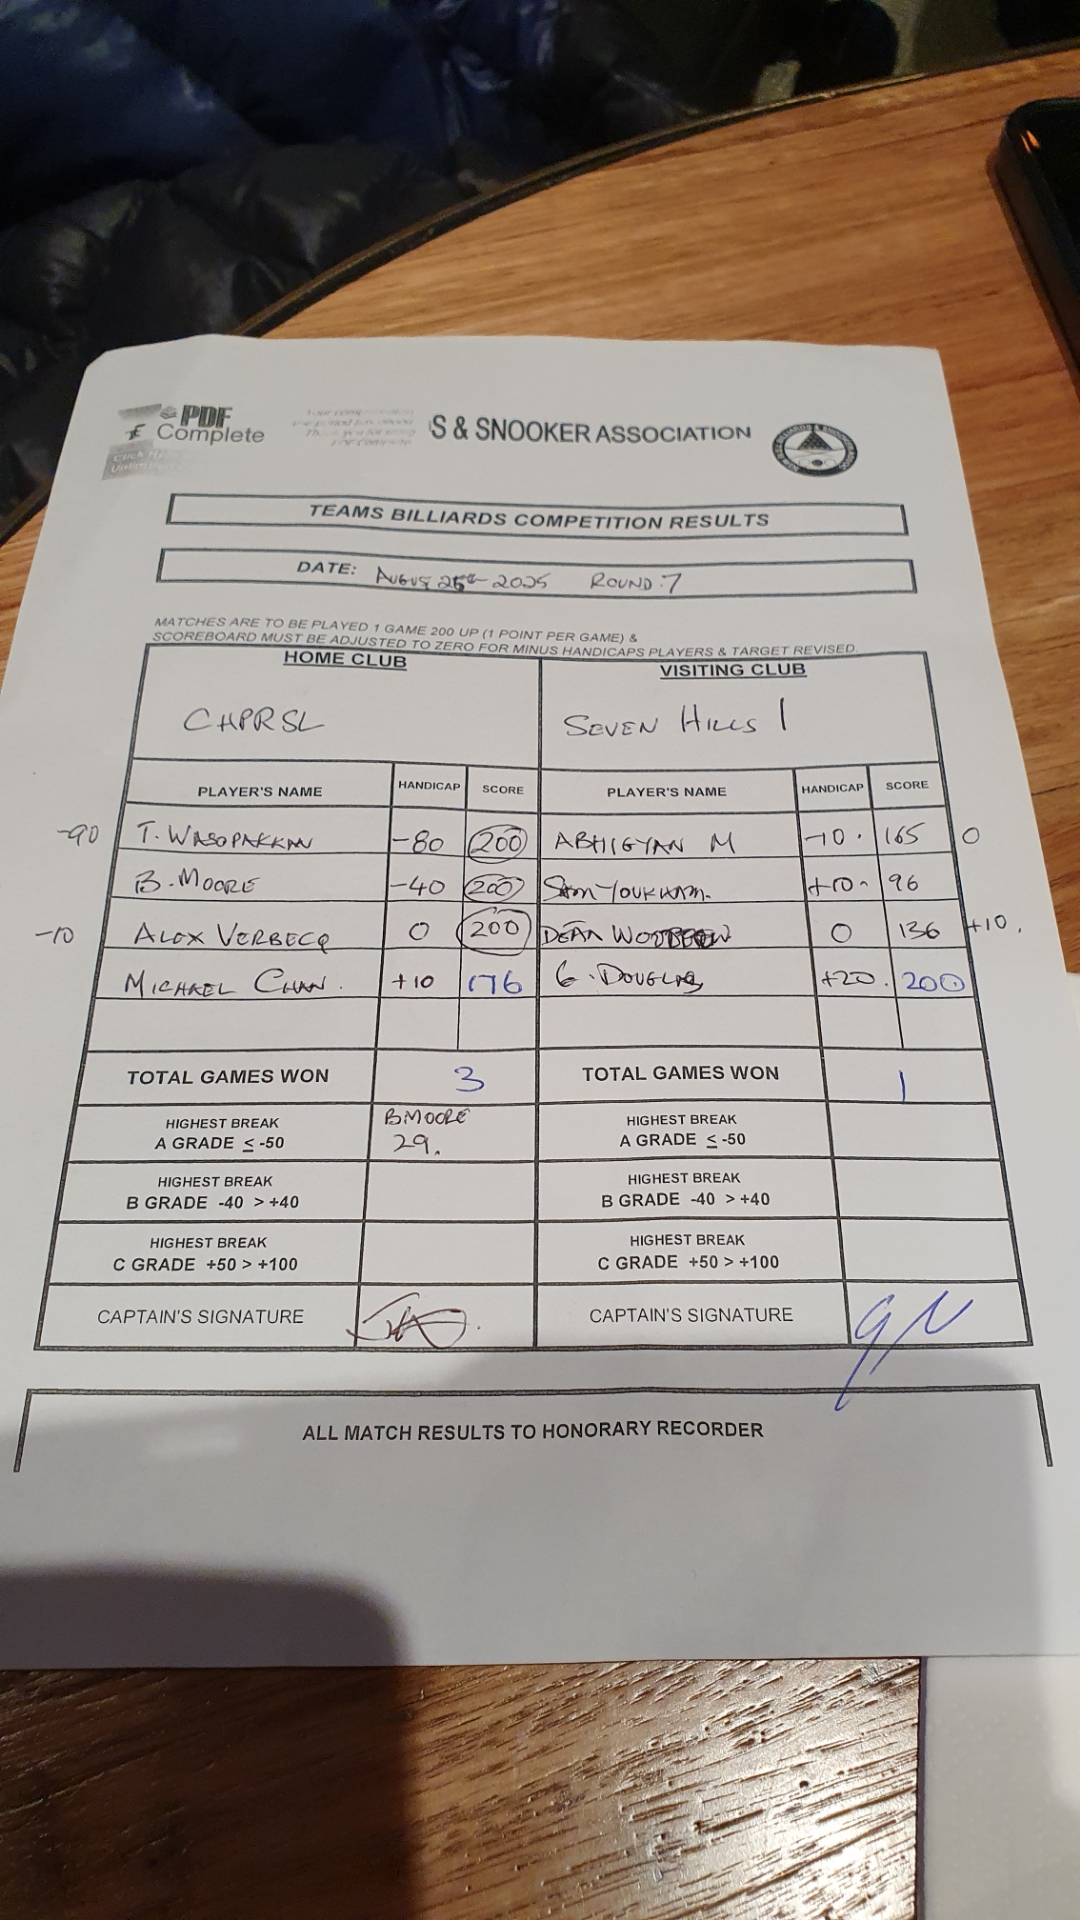 PDF
Complete
S & SNOOKER ASSOCIATION
TEAMS BILLIARDS COMPETITION RESULTS
DATE: AUGUS 25th 2025 ROUND:7
MATCHES ARE TO BE PLAYED 1 GAME 200 UP (1 POINT PER GAME) &
SCOREBOARD MUST BE ADJUSTED TO ZERO FOR MINUS HANDICAPS PLAYERS & TARGET REVISED.
HOME CLUB VISITING CLUB
CHPRSL SEVEN HILLS 1
PLAYER'S NAME HANDICAP SCORE PLAYER'S NAME HANDICAP SCORE
-90 T. WASOPAKKAN -80 200 ABHIGYAN M -10. 165 0
B. MOORE -40 200 SAM YOUKHANA. +10- 96
-10 ALEX VERBECQ 0 200 DEAN 0 136 +10.
MICHAEL CHAN. +10 176 G. DOUGLAS +20. 200
TOTAL GAMES WON 3 TOTAL GAMES WON 1
HIGHEST BREAK B.MOORE HIGHEST BREAK
A GRADE ≤ -50 29. A GRADE ≤ -50
HIGHEST BREAK HIGHEST BREAK
B GRADE -40 > +40 B GRADE -40 > +40
HIGHEST BREAK HIGHEST BREAK
C GRADE +50 > +100 C GRADE +50 > +100
CAPTAIN'S SIGNATURE CAPTAIN'S SIGNATURE
ALL MATCH RESULTS TO HONORARY RECORDER